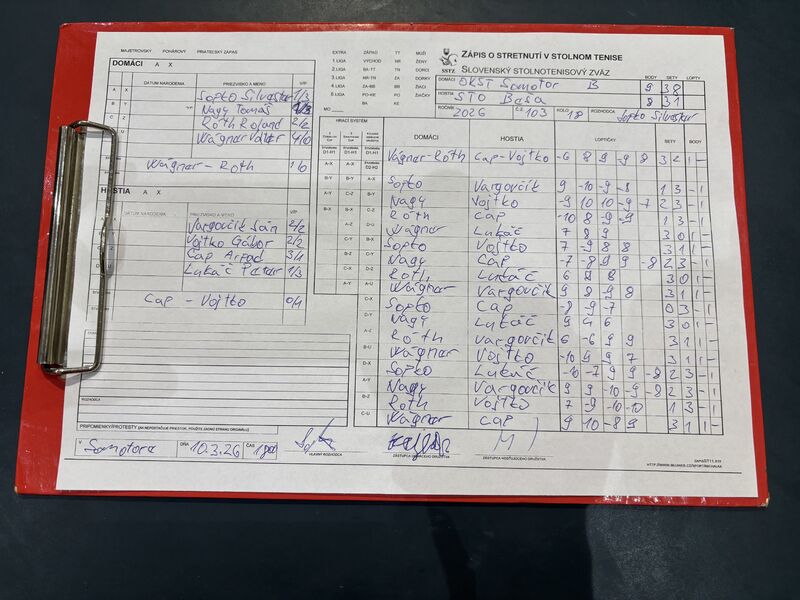 MAJSTROVSKÝ POHÁROVÝ PRIATEĽSKÝ ZÁPAS
DOMÁCI A X
DÁTUM NARODENIA PRIEZVISKO A MENO V/P
Sopko Silvester 1/3
Nagy Tomáš 1/3
Róth Roland 2/2
Wágner Valter 4/0
Wágner - Róth 1/0
HOSTIA A X
DÁTUM NARODENIA PRIEZVISKO A MENO V/P
Vargovčik Ján 2/2
Vojtko Gábor 2/2
Cap Arpád 3/1
Lukáč Peter 1/3
Cap - Vojtko 0/1
ROZHODCA
PRIPOMIENKY/PROTESTY (AK NEPOSTAČUJE PRIESTOR, POUŽITE ZADNÚ STRANU ORIGINÁLU)
V Somotore DŇA 10.3.26 ČAS 18:00
HLAVNÝ ROZHODCA
ZÁSTUPCA DOMÁCEHO DRUŽSTVA
ZÁSTUPCA HOSŤUJÚCEHO DRUŽSTVA
EXTRA ZÁPAD TT MUŽI
1.LIGA VÝCHOD NR ŽENY
2.LIGA BA-TT TN DORCI
3.LIGA NR-TN ZA DORKY
4.LIGA ZA-BB BB ŽIACI
5.LIGA PO-KE PO ŽIAČKY
6.LIGA BA KE
MO
SSTZ
ZÁPIS O STRETNUTÍ V STOLNOM TENISE
SLOVENSKÝ STOLNOTENISOVÝ ZVÄZ
BODY SETY LOPTY
DOMÁCI OKST Somotor B 9 38
HOSTIA STO Baša 8 31
ROČNÍK 2026 Č. 103 KOLO 18 ROZHODCA Sopko Silvester
HRACÍ SYSTÉM
DOMÁCI HOSTIA LOPTIČKY SETY BODY
Wágner-Róth Cap-Vojtko -6 8 9 -9 8 3 2 1 -
Sopko Vargovčik 9 -10 -9 -8 1 3 - 1
Nagy Vojtko -9 10 10 -9 -7 2 3 - 1
Róth Cap -10 8 -9 -9 1 3 - 1
Wágner Lukáč 7 8 9 3 0 1 -
Sopko Vojtko 7 -9 8 8 3 1 1 -
Nagy Cap -7 -8 9 9 -8 2 3 - 1
Róth Lukáč 6 8 8 3 0 1 -
Wágner Vargovčik 9 8 -9 8 3 1 1 -
Sopko Cap -8 -9 -7 0 3 - 1
Nagy Lukáč 9 4 6 3 0 1 -
Róth Vargovčik 6 -6 9 9 3 1 1 -
Wágner Vojtko -10 9 9 7 3 1 1 -
Sopko Lukáč -10 -7 9 9 -8 2 3 - 1
Nagy Vargovčik 9 9 -10 -9 -8 2 3 - 1
Róth Vojtko 7 -9 -10 -10 1 3 - 1
Wágner Cap 9 10 -8 9 3 1 1 -